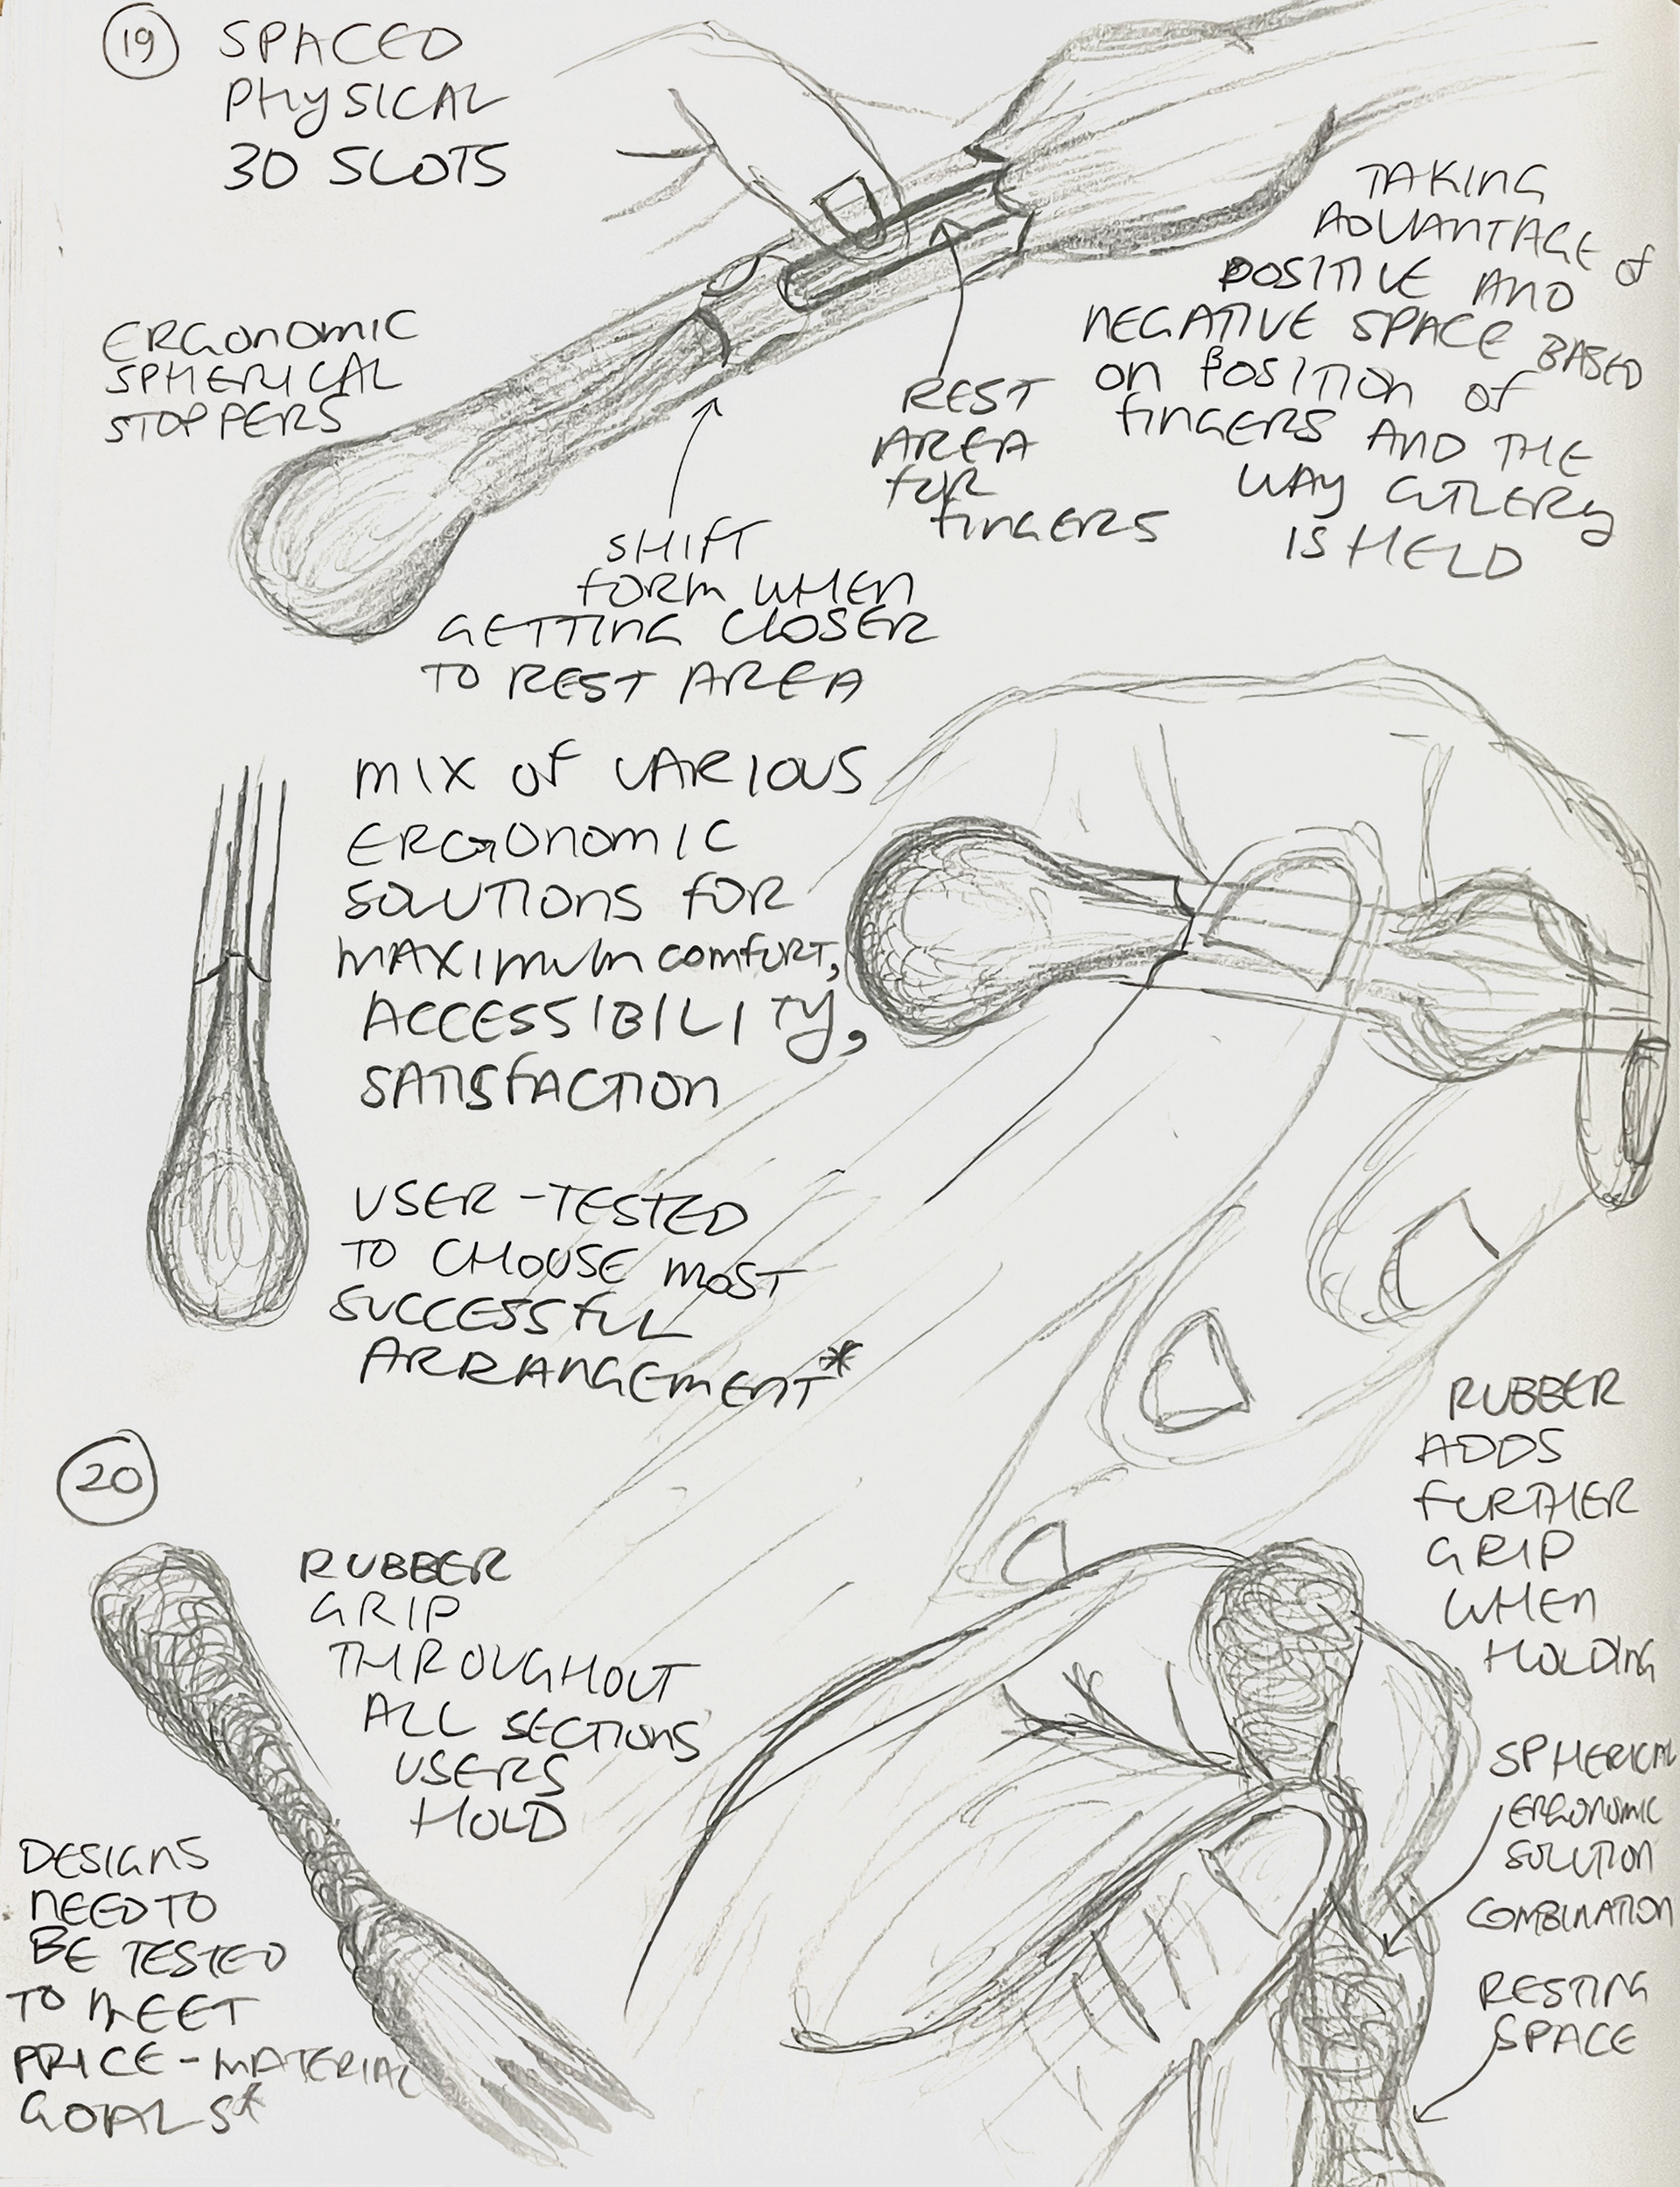 19
SPACED
PHYSICAL
3D SLOTS
TAKING
ADVANTAGE of
POSITIVE AND
NEGATIVE SPACE BASED
ON POSITION OF
FINGERS AND THE
WAY CUTLERY
IS HELD
ERGONOMIC
SPHERICAL
STOPPERS
REST
AREA
FOR
FINGERS
SHIFT
FORM WHEN
GETTING CLOSER
TO REST AREA
MIX OF VARIOUS
ERGONOMIC
SOLUTIONS FOR
MAXIMUM COMFORT,
ACCESSIBILITY,
SATISFACTION
USER-TESTED
TO CHOOSE MOST
SUCCESSFUL
ARRANGEMENT*
20
RUBBER
GRIP
THROUGHOUT
ALL SECTIONS
USERS
HOLD
RUBBER
ADDS
FURTHER
GRIP
WHEN
HOLDING
SPHERICAL
ERGONOMIC
SOLUTION
COMBINATION
RESTING
SPACE
DESIGNS
NEED TO
BE TESTED
TO MEET
PRICE-MATERIAL
GOALS*